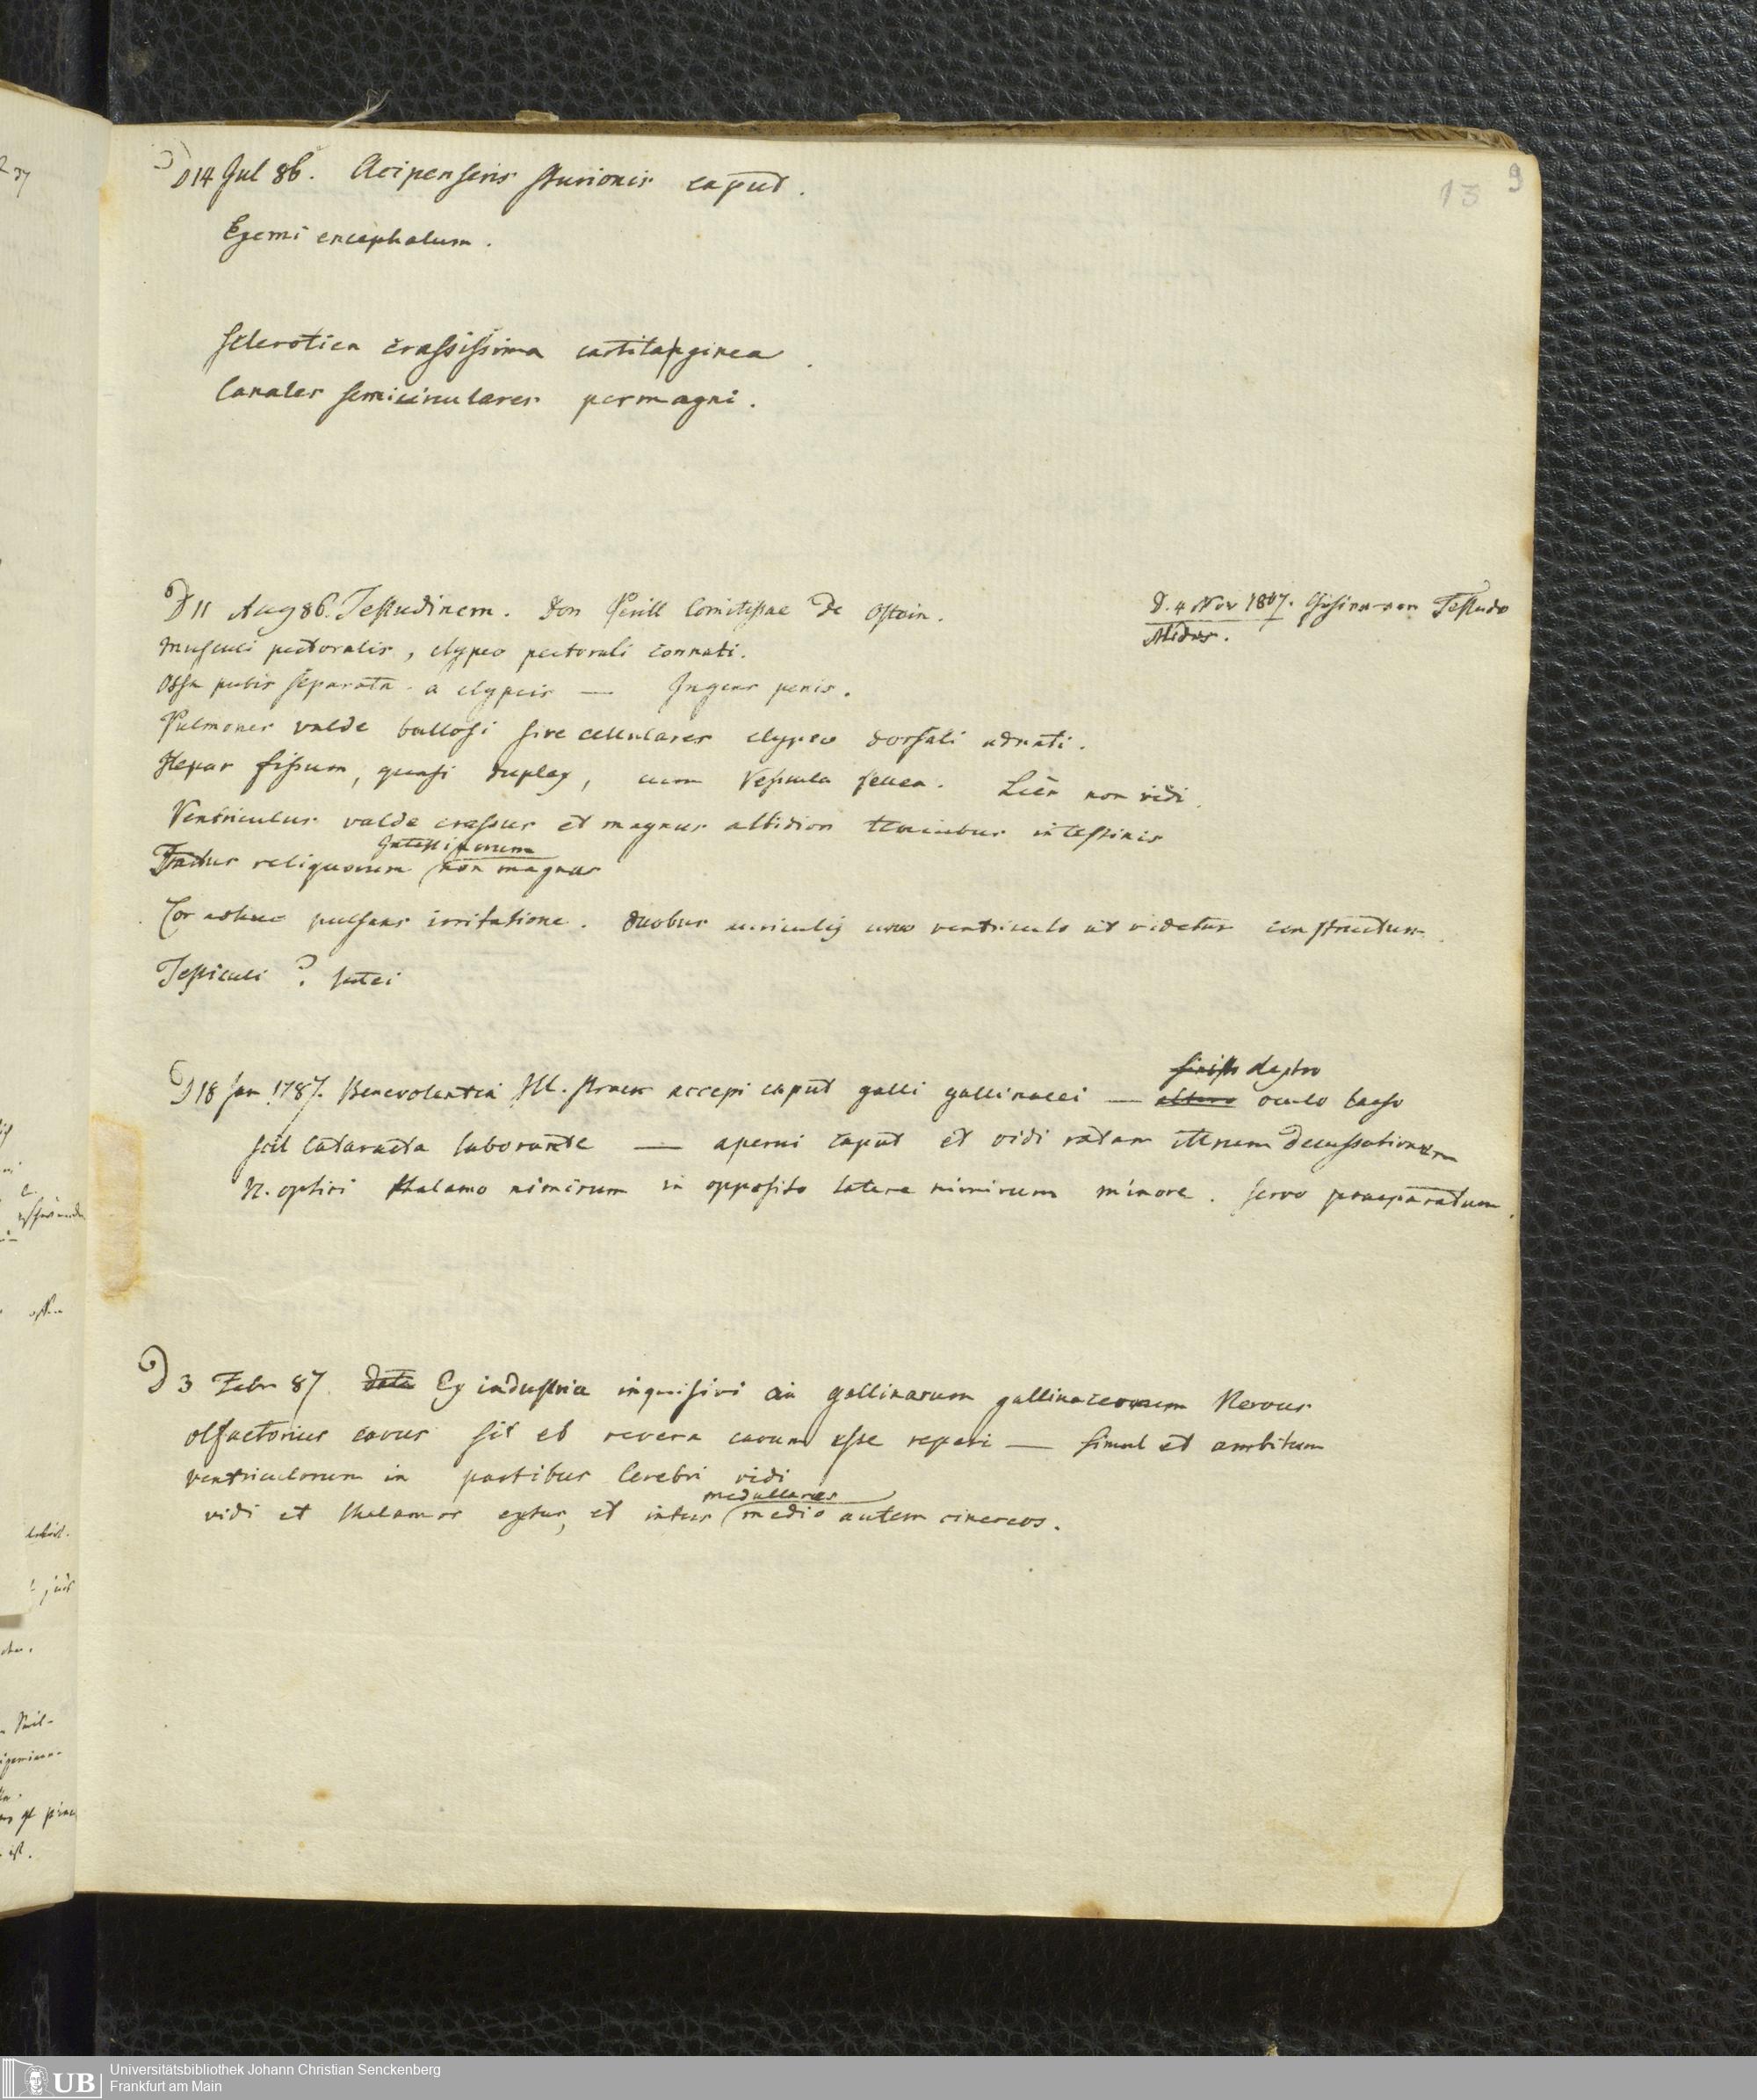 9
13
D 14 Jul 86. Acipenseris Sturionis caput.
Exemi encephalum.
Sclerotica crassissima cartilaginea.
Canales semicirculares permagni.
D 11 Aug 86. Testudinem. Don Perill Comitissae De Ostein.
D. 4 Nov 1807. Testudo
Midas.
Musculi pectorales, clypeo pectorali connati.
Ossa pubis separata a clypeis — Ingens penis.
Pulmones valde bullosi sive cellulares clypeo dorsali adnati.
Hepar fissum, quasi duplex, cum Vesicula fellea. Lien non vidi.
Ventriculus valde crassus et magnus albidior tenuibus intestinis
Intestinorum
Tractus reliquorum non magnus
Cor adhuc pulsans irritatione. duobus auriculis uno ventriculo ut videtur constructum.
Testiculi? lutei
sinistr dextro
D 18 Jan 1787. Benevolentia Ill. Strack accepi caput galli gallinacei — altero oculo laeso
scil Cataracta laborante — aperui caput et vidi ratam iterum Decussationem
N. optici thalamo nimirum in opposito latere nimirum minore. Servo praeparatum.
D 3 Febr 87. data Ex industria inquisivi an gallinarum gallinaceorum Nervus
olfactorius cavus sit et revera cavum esse reperi — simul et ambitum
ventriculorum in partibus Cerebri vidi
medullares
vidi et thalamos extus, et intus medio autem cinereos.
UB
Universitätsbibliothek Johann Christian Senckenberg
Frankfurt am Main